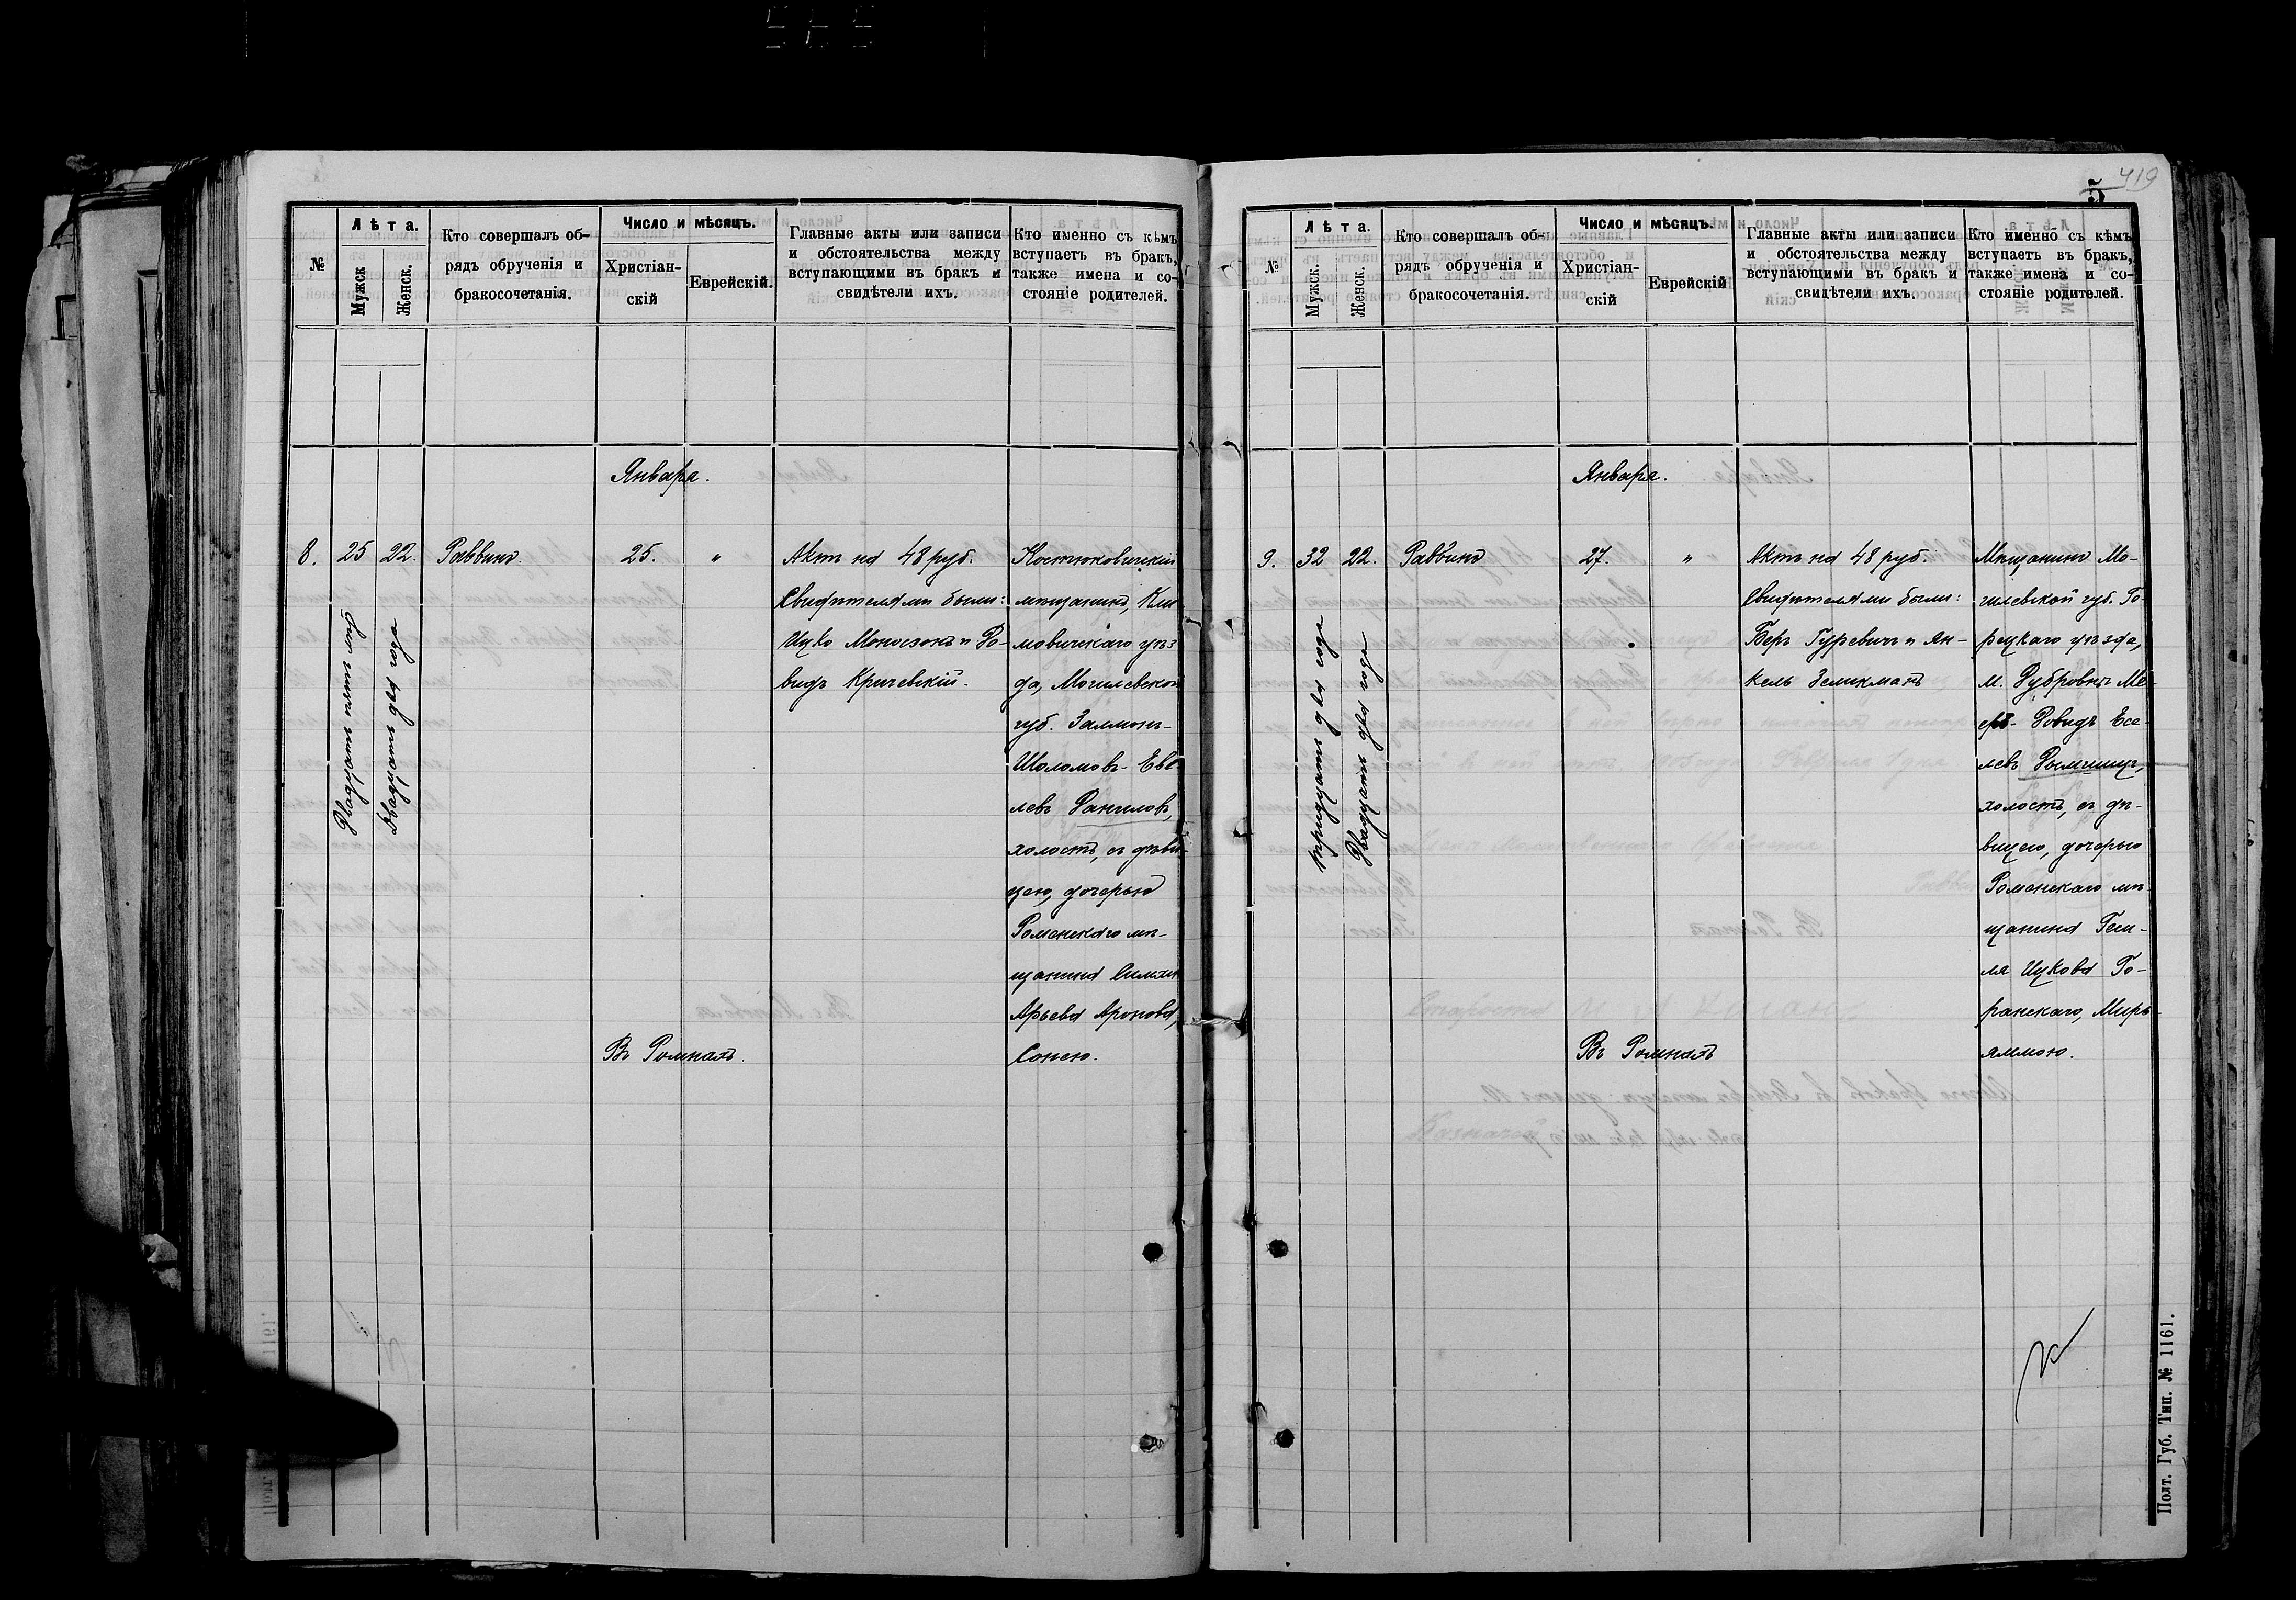 №
Лѣта.
Мужск
Женск.
Кто совершалъ об-
рядъ обрученія и
бракосочетанія.
Число и мѣсяцъ.
Христіан-
скій
Еврейскій.
Главные акты или записи
и обстоятельства между
вступающими въ бракъ и
свидѣтели ихъ.
Кто именно съ кѣмъ
вступаетъ въ бракъ,
также имена и со-
стояніе родителей.
Января.
8.
25
Двадцать пять лѣтъ
22.
Двадцать два года
Раввинъ.
25.
"
Актъ на 48 руб.
Свидѣтелями были:
Ицко Моносзонъ и До-
видъ Кричевскій.
Костюковичскій
мѣщанинъ, Кли-
мовичскаго уѣз
да, Могилевской
губ. Залмонъ-
Шоломовъ-Еве-
левъ Данилов,
холостъ, съ дѣви-
цею, дочерью
Роменскаго мѣ-
щанина Симхи
Арьева Аронова,
Сонею.
Въ Ромнахъ.
419
5
№
Лѣта.
Мужск.
Женск.
Кто совершалъ об-
рядъ обрученія и
бракосочетанія.
Число и мѣсяцъ.
Христіан-
скій
Еврейскій
Главные акты или записи
и обстоятельства между
вступающими въ бракъ и
свидѣтели ихъ.
Кто именно съ кѣмъ
вступаетъ въ бракъ,
также имена и со-
стояніе родителей.
Января.
9.
32
Тридцать два года
22.
Двадцать два года
Раввинъ
27.
"
Актъ на 48 руб.
Свидѣтелями были:
Беръ Гуревичъ и Ян-
кель Зеликманъ
Мѣщанинъ Мо-
гилевской губ. Го-
рецкаго уѣзда,
м. Дубровны Ме-
еръ-Довидъ Есе-
левъ
холостъ, съ дѣ-
вицею, дочерью
Роменскаго мѣ-
щанина Геси-
ля Ицкова Го-
ранскаго, Мирь-
яммою.
Въ Ромнахъ
Полт. Губ. Тип. № 1161.